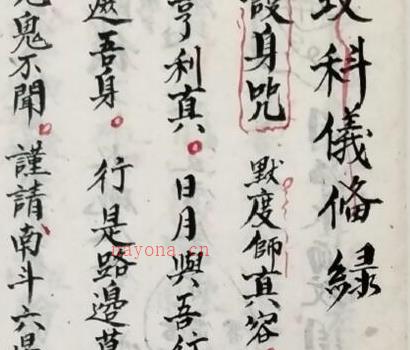 科儀俻綠
身咒 默度師真容
亨利真。日月與吾行
遮吾身。行是路邊草
鬼不聞。謹請南斗六星
nayona.cn